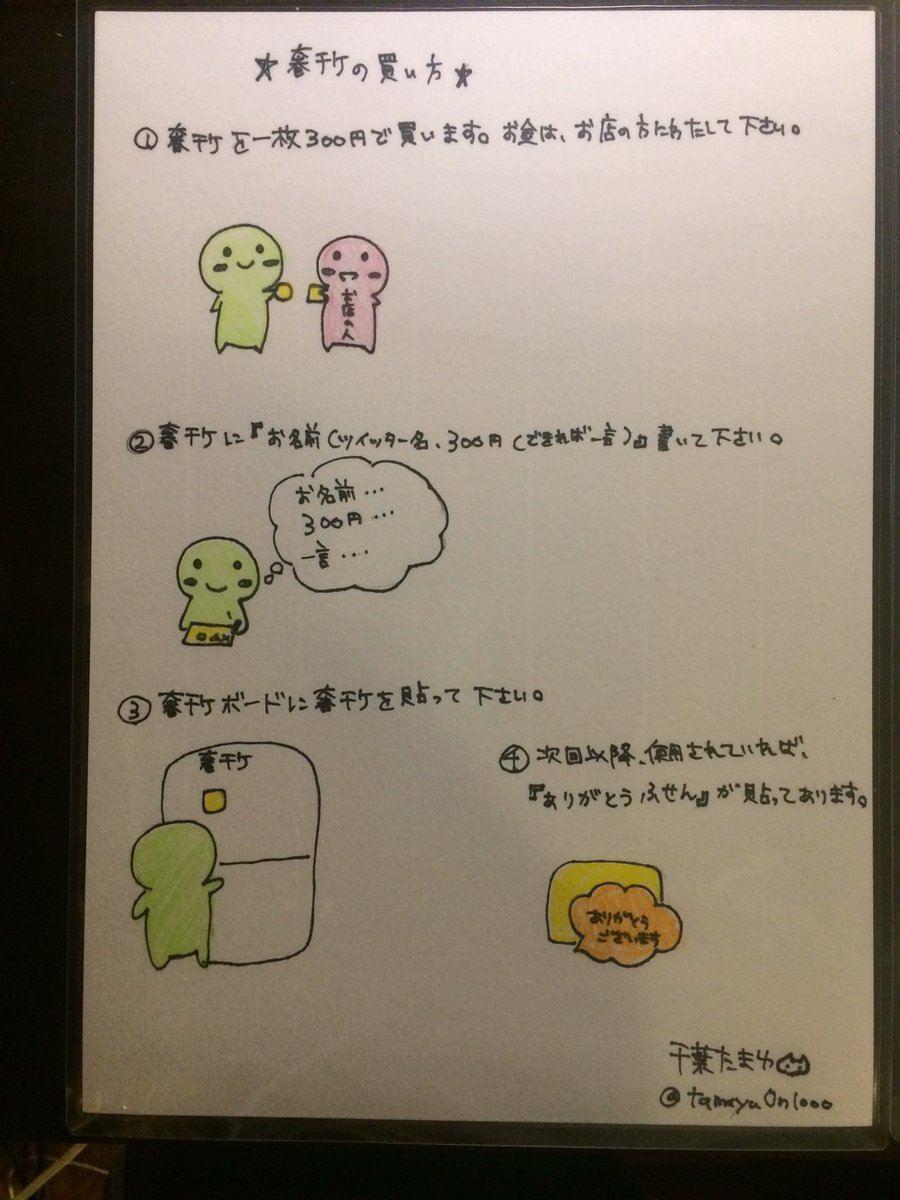 ☆奢チケの買い方☆
①奢チケを一枚300円で買います。お金は、お店の方にわたして下さい。
お店の人
②奢チケに『お名前(ツイッター名、300円(できれば一言)』書いて下さい。
お名前…
300円…
一言‥‥
③奢チケボードに奢チケを貼って下さい。
奢チケ
④次回以降、使用されていれば、
『ありがとうふせん』が貼ってあります。
ありがとう
ございます
千葉たまゆ
@tamayu0n1000